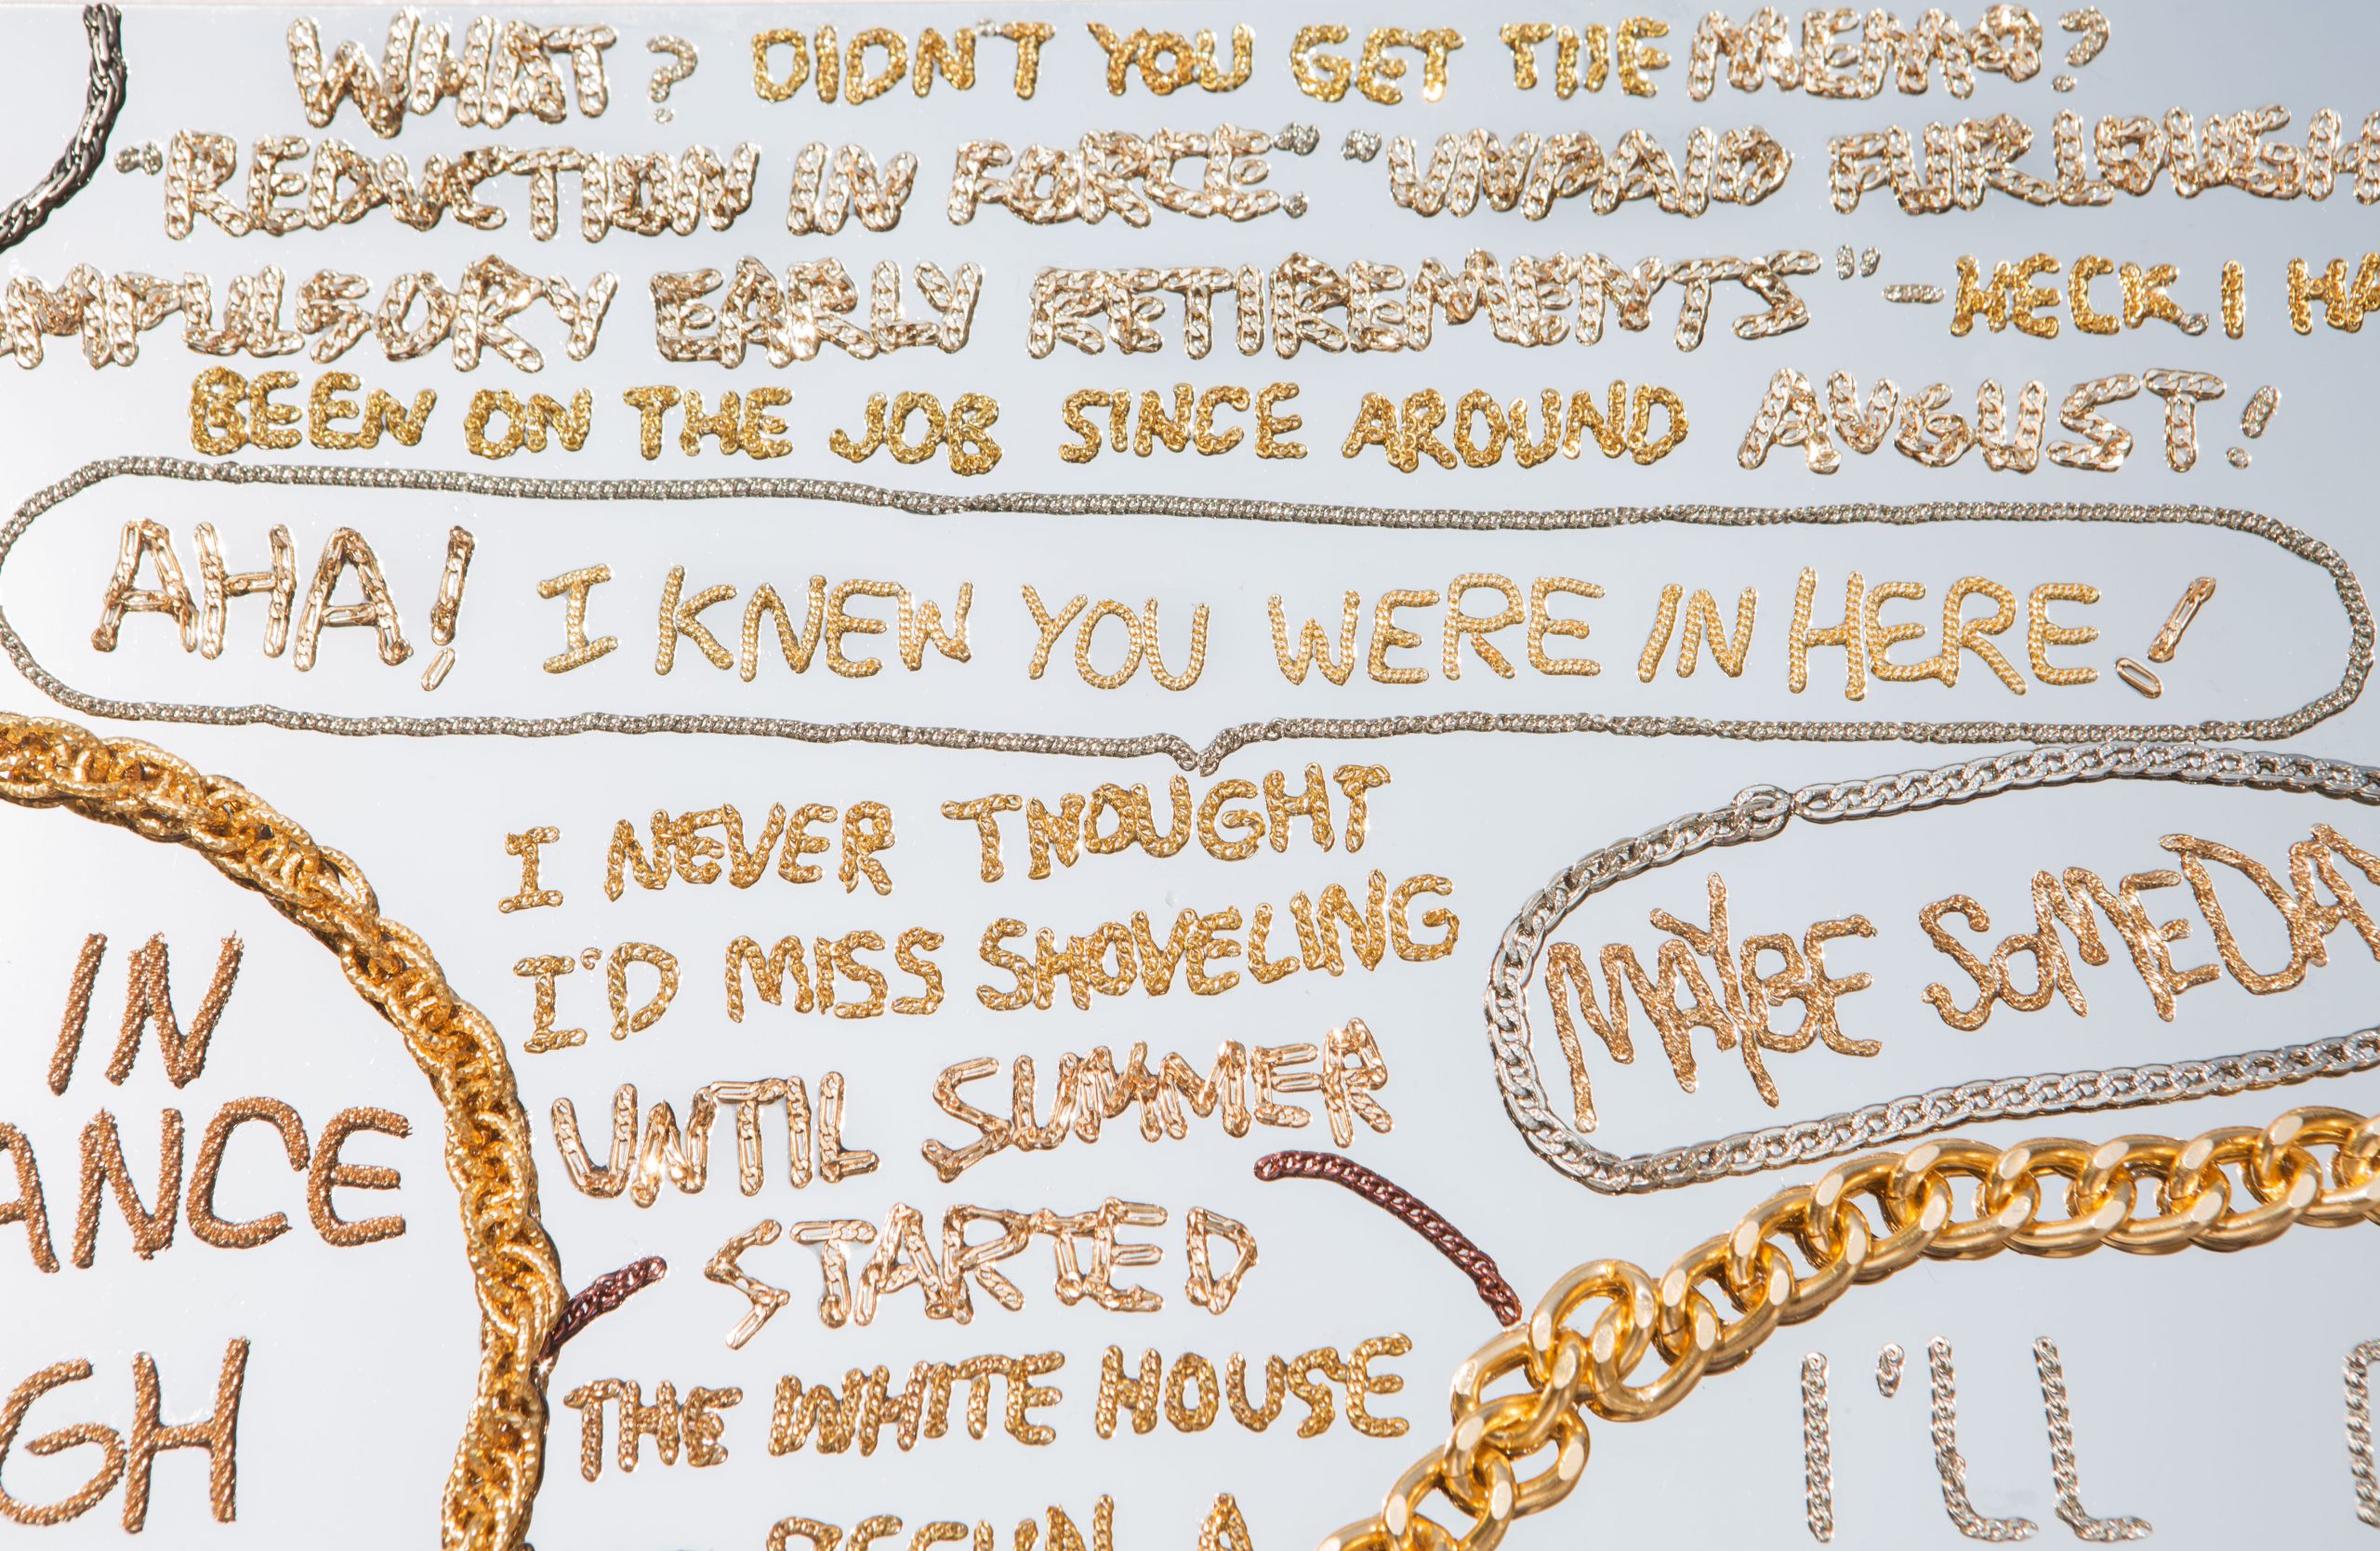 WHAT? DIDN'T YOU GET THE MEMO?
"REDUCTION IN FORCE." "UNPAID FURLOUGH
MPULSORY EARLY RETIREMENTS"-HECK, I HA
BEEN ON THE JOB SINCE AROUND AUGUST!
AHA! I KNEW YOU WERE IN HERE!
I NEVER THOUGHT
I'D MISS SHOVELING
UNTIL SUMMER
STARTED
THE WHITE HOUSE
BEGUN A
MAYBE SOMEDA
IN
ANCE
GH
I'LL